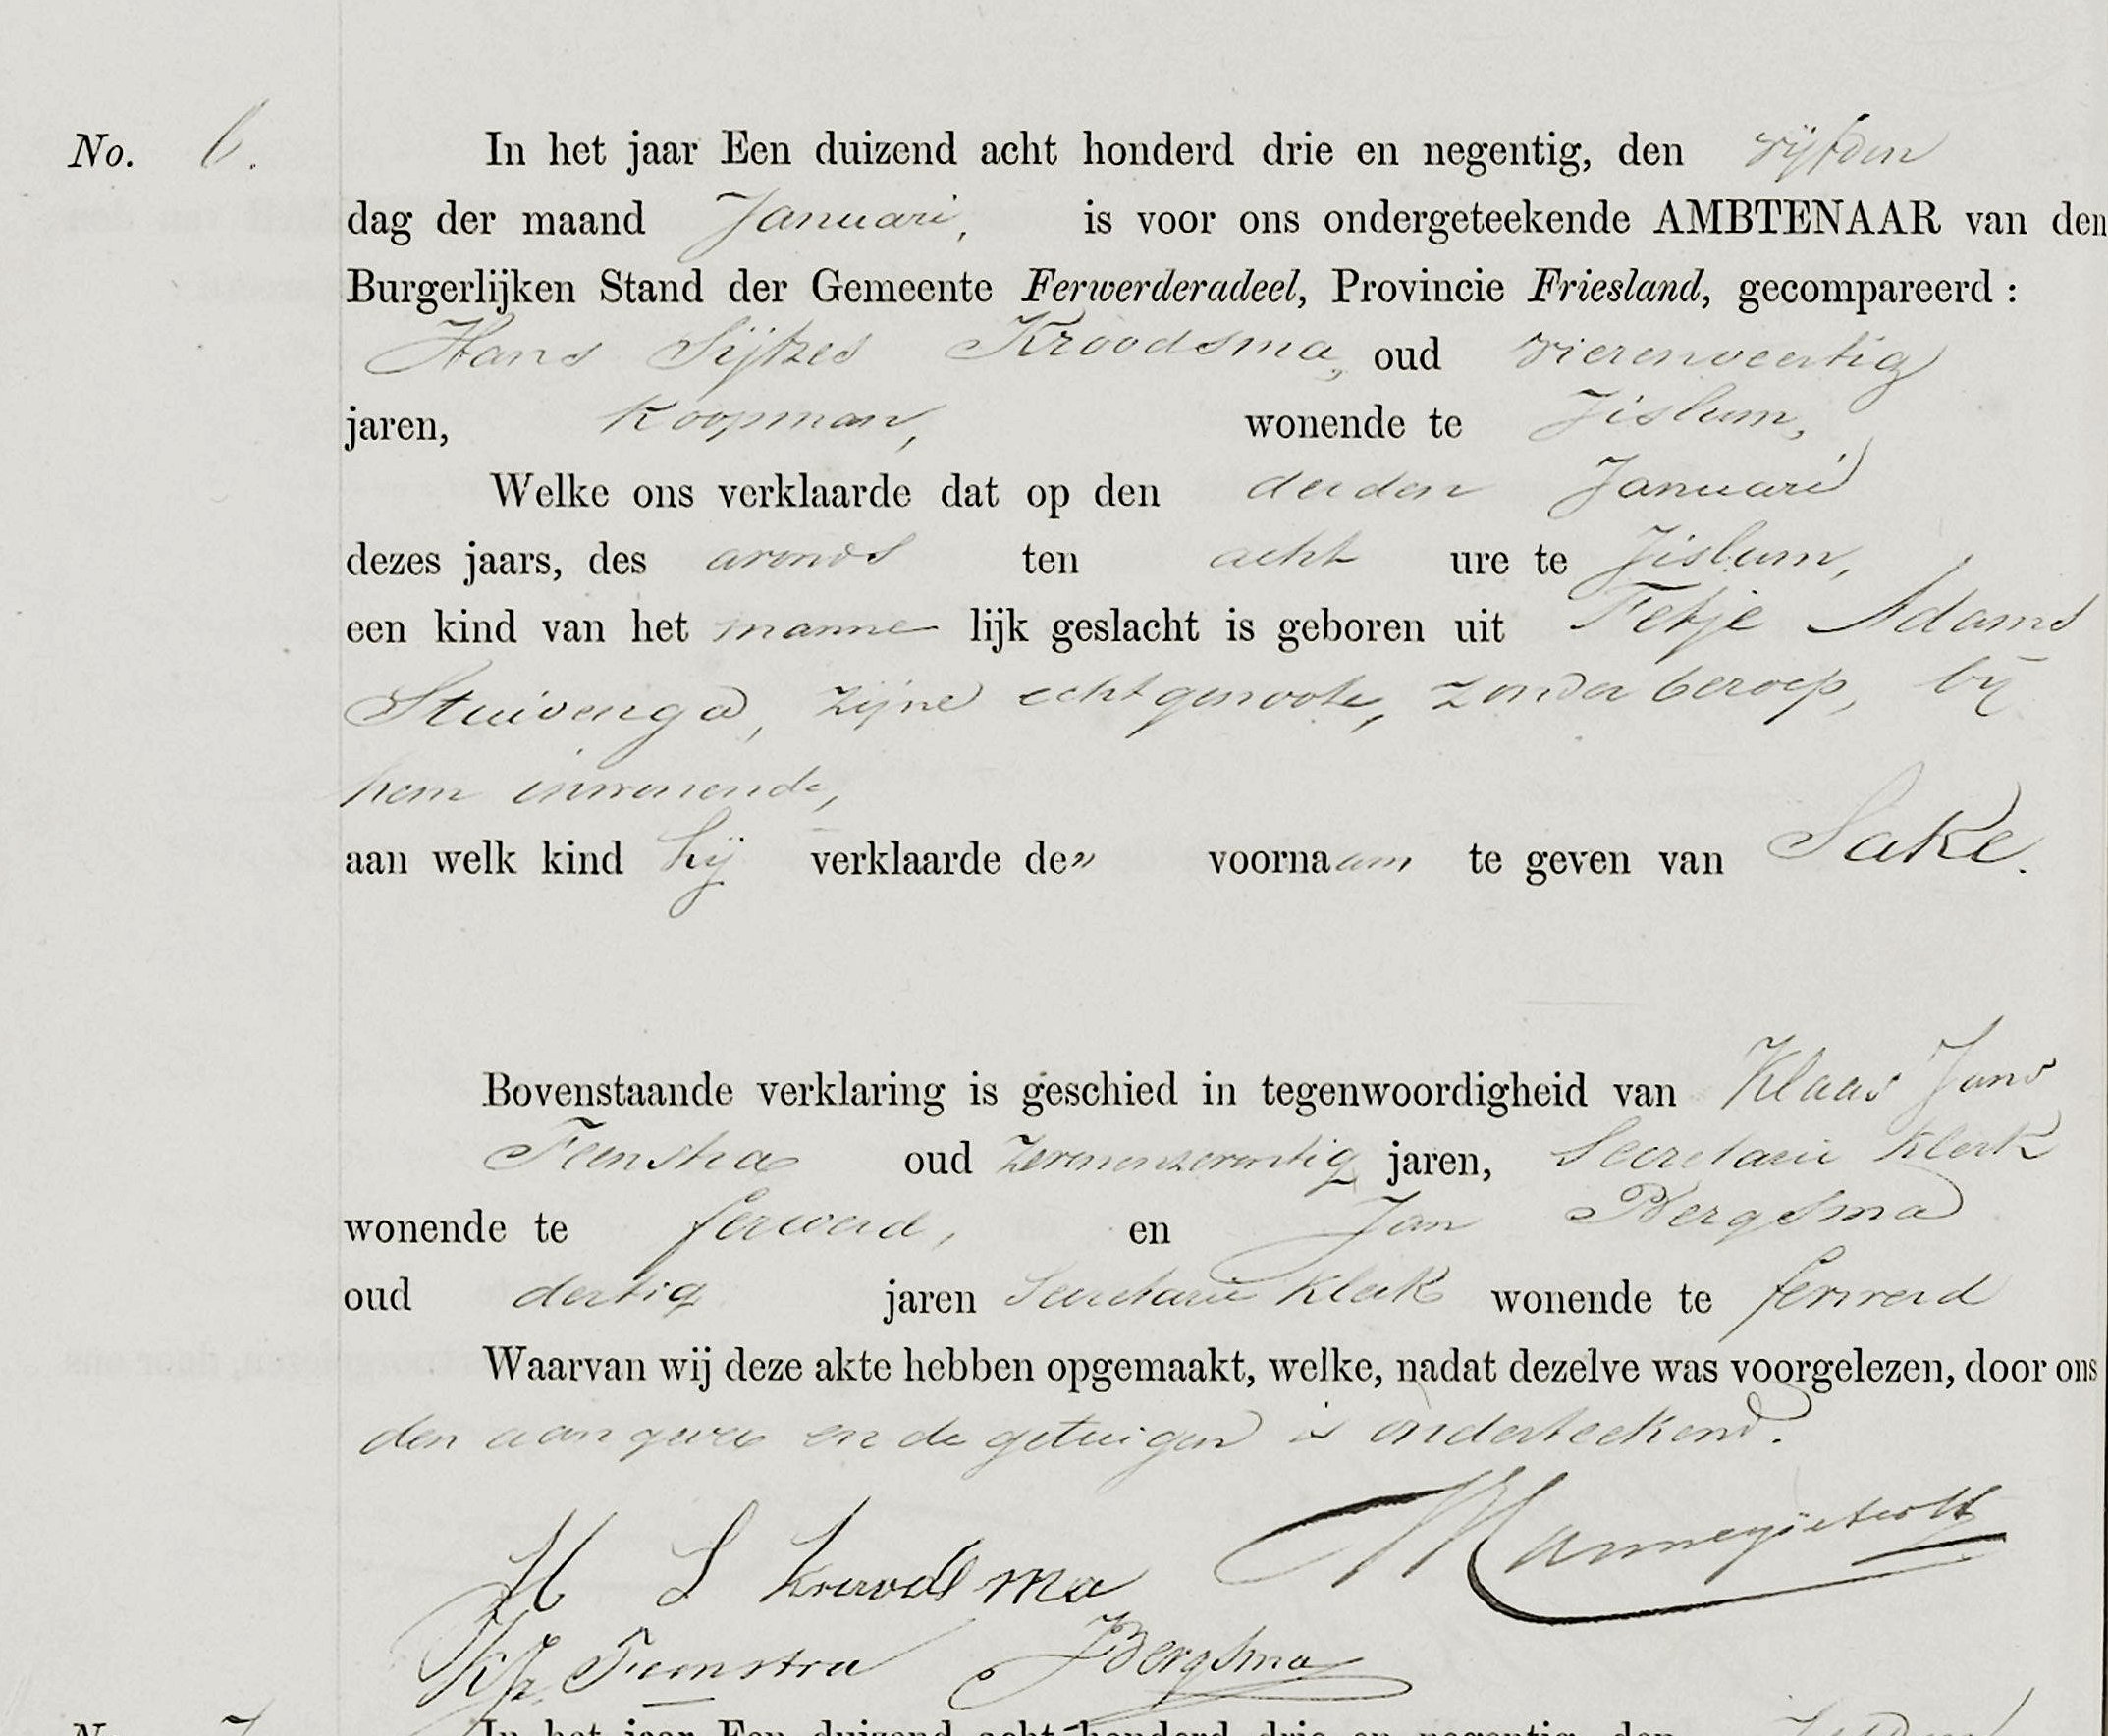 No. 6. In het jaar Een duizend acht honderd drie en negentig, den vijfden
dag der maand Januari, is voor ons ondergeteekende AMBTENAAR van den
Burgerlijken Stand der Gemeente Ferwerderadeel, Provincie Friesland, gecompareerd :
Hans Sijtzes Kroodsma, oud vierenveertig
jaren, Koopman, wonende te Jislum,
Welke ons verklaarde dat op den derden Januari
dezes jaars, des avonds ten acht ure te Jislum,
een kind van het mannelijk geslacht is geboren uit Fetje Adams
Stuivenga, zijne echtgenoote, zonder beroep, bij
hem inwonende,
aan welk kind hij verklaarde de„ voornaam te geven van Sake.
Bovenstaande verklaring is geschied in tegenwoordigheid van Klaas Jans
Feenstra oud zevenenzeventig jaren, Secretarie Klerk
wonende te Ferwerd, en Jan Bergsma
oud dertig jaren Secretarie Klerk wonende te Ferwerd
Waarvan wij deze akte hebben opgemaakt, welke, nadat dezelve was voorgelezen, door ons
den aangever en de getuigen is onderteekend.
H S Kroodsma
KJz. Feenstra JBergsma
No. 7 In het jaar Een duizend acht honderd drie en negentig, den